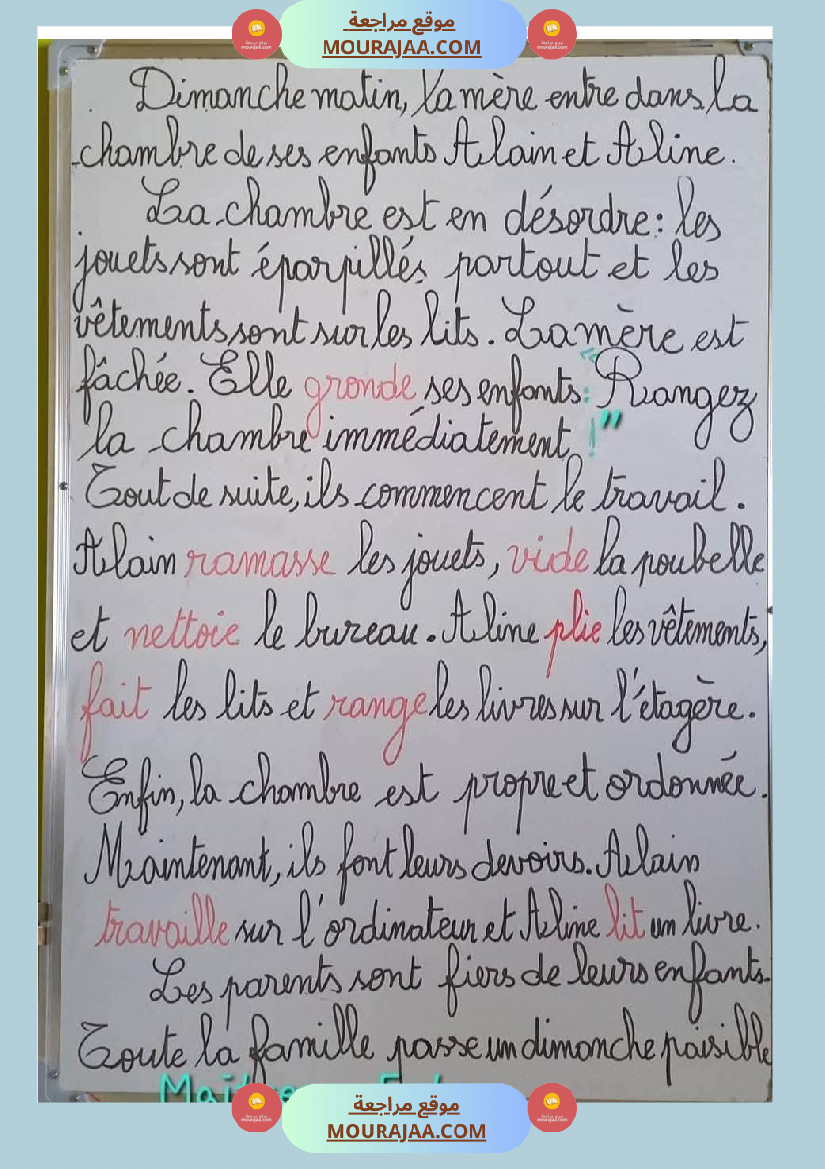 موقع مراجعة
MOURAJAA.COM
Dimanche matin, la mère entre dans la
chambre de ses enfants Alain et Aline.
La chambre est en désordre : les
jouets sont éparpillés partout et les
vêtements sont sur les lits. La mère est
fâchée. Elle gronde ses enfants : "Rangez
la chambre immédiatement !"
Tout de suite, ils commencent le travail.
Alain ramasse les jouets, vide la poubelle
et nettoie le bureau. Aline plie les vêtements,
fait les lits et range les livres sur l'étagère.
Enfin, la chambre est propre et ordonnée.
Maintenant, ils font leurs devoirs. Alain
travaille sur l'ordinateur et Aline lit un livre.
Les parents sont fiers de leurs enfants.
Toute la famille passe un dimanche paisible
موقع مراجعة
MOURAJAA.COM